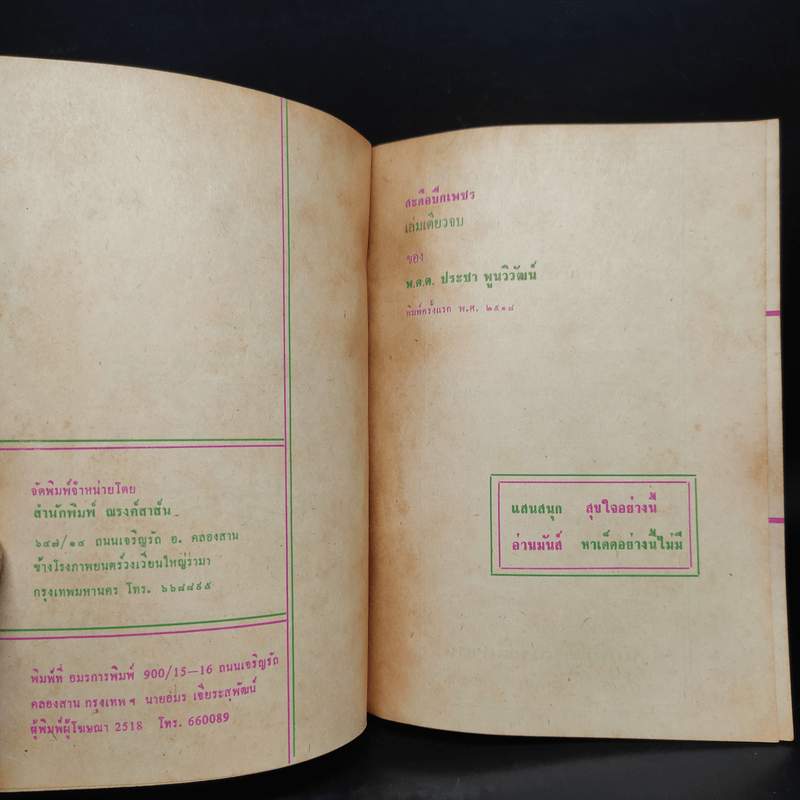 จัดพิมพ์จำหน่ายโดย
สำนักพิมพ์ ณรงค์สาส์น
๖๔๗/๑๔ ถนนเจริญรัถ อ. คลองสาน
ข้างโรงภาพยนตร์วงเวียนใหญ่รามา
กรุงเทพมหานคร โทร. ๖๖๘๘๙๕
พิมพ์ที่ อมรการพิมพ์ 900/15—16 ถนนเจริญรัถ
คลองสาน กรุงเทพ ฯ นายอมร เจียระสุพัฒน์
ผู้พิมพ์ผู้โฆษณา 2518 โทร. 660089
สะดือบึกเพชร
เล่มเดียวจบ
ของ
พ.ต.ต. ประชา พูนวิวัฒน์
พิมพ์ครั้งแรก พ.ศ. ๒๕๑๘
แสนสนุก สุขใจอย่างนี้
อ่านมันส์ หาเด็ดอย่างนี้ไม่มี